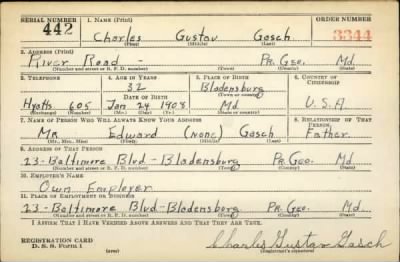 SERIAL NUMBER 1. NAME (Print) ORDER NUMBER
442 Charles Gustav Gasch 3344
(First) (Middle) (Last)
2. ADDRESS (Print)
River Road - Pr. Geo. Md.
(Number and street or R. F. D. number) (Town) (County) (State)
3. TELEPHONE 4. AGE IN YEARS 5. PLACE OF BIRTH 6. COUNTRY OF CITIZENSHIP
32 Bladensburg
DATE OF BIRTH (Town or county)
Hyatts 605 Jan 24 1908 Md U.S.A
(Exchange) (Number) (Mo.) (Day) (Yr.) (State or country)
7. NAME OF PERSON WHO WILL ALWAYS KNOW YOUR ADDRESS 8. RELATIONSHIP OF THAT PERSON
Mr Edward (none) Gasch Father
(Mr., Mrs., Miss) (First) (Middle) (Last)
9. ADDRESS OF THAT PERSON
23-Baltimore Blvd-Bladensburg Pr. Geo. Md
(Number and street or R. F. D. number) (Town) (County) (State)
10. EMPLOYER'S NAME
Own Employer
11. PLACE OF EMPLOYMENT OR BUSINESS
23-Baltimore Blvd-Bladensburg Pr. Geo. Md
(Number and street or R. F. D. number) (Town) (County) (State)
I AFFIRM THAT I HAVE VERIFIED ABOVE ANSWERS AND THAT THEY ARE TRUE.
REGISTRATION CARD
D. S. S. Form 1 (over) Charles Gustav Gasch
(Registrant's signature)